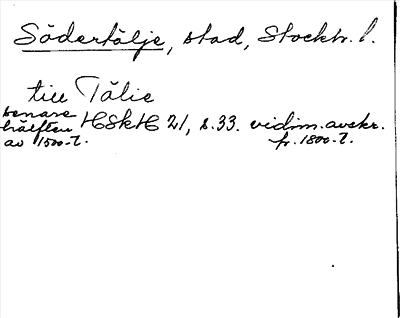 Södertälje, stad, Stockh. l.
till Tälie
senare hälften av 1500-t. HSkH 21, s. 33. vidim. avskr. fr. 1800-t.